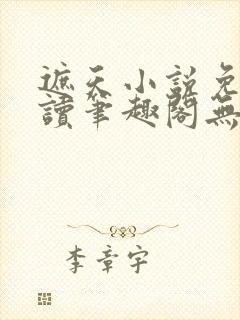 遮天小説免
讀筆趣閣無
李章宇